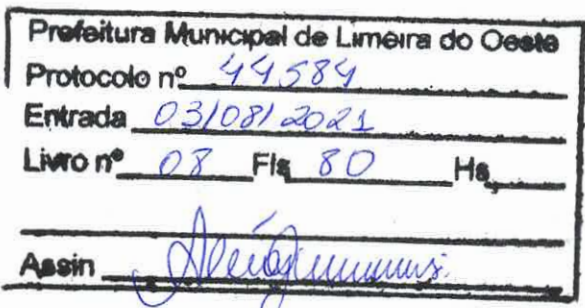 Prefeitura Municipal de Limeira do Oeste
Protocolo nº 44584
Entrada 03/08/2021
Livro nº 08 Fls 80 Hs,
Assin